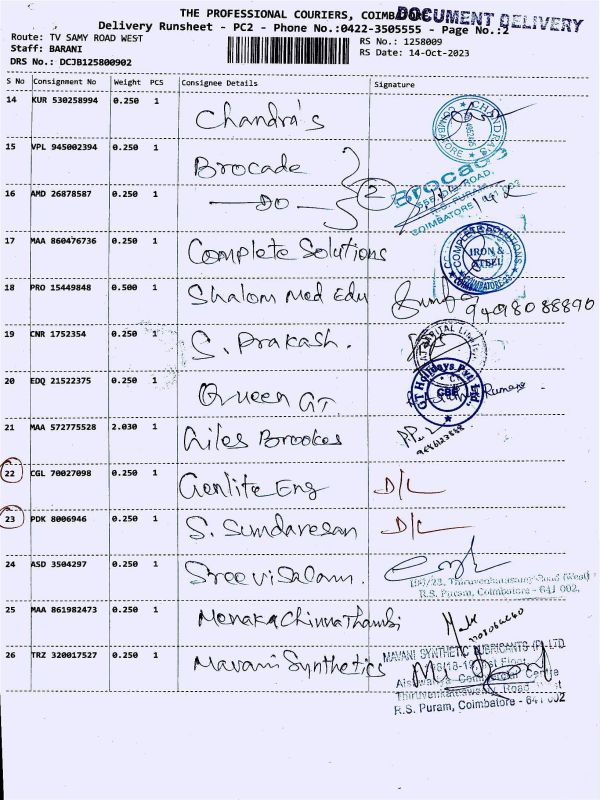 THE PROFESSIONAL COURIERS, COIMBATORE
DOCUMENT DELIVERY
Delivery Runsheet - PC2 - Phone No.:0422-3505555 - Page No.:2
Route: TV SAMY ROAD WEST
RS No.: 1258009
Staff: BARANI
RS Date: 14-Oct-2023
DRS No.: DCJB125800902
S No Consignment No Weight PCS Consignee Details Signature
14 KUR 530258994 0.250 1 Chandra's
CHANDRA'S COIMBATORE
15 VPL 945002394 0.250 1 Brocade
16 AMD 26878587 0.250 1 —DO— 2
Brocade
ROAD,
R.S. PURAM,
COIMBATORE
17 MAA 860476736 0.250 1 Complete Solutions
COMPLETE SOLUTIONS IRON & STEEL
18 PRO 15449848 0.500 1 Shalom Med Edu
9498088890
19 CNR 1752354 0.250 1 S. Prakash.
20 EDQ 21522375 0.250 1 Queen GT.
GT Holidays Pvt Ltd CBE
21 MAA 572775528 2.030 1 Giles Brookes
22 CGL 70027098 0.250 1 Genlite Eng D/L
23 PDK 8006946 0.250 1 S. Sundaresan D/L
24 ASD 3504297 0.250 1 Sreevisalam.
Thiruvenkatasamy Road (West)
R.S. Puram, Coimbatore - 641 002.
25 MAA 861982473 0.250 1 Menaka Chinnathambi
26 TRZ 320017527 0.250 1 Mavani Synthetics
MAVANI SYNTHETIC LUBRICANTS (P) LTD
Floor
Commercial Centre
Thiruvenkataswamy Road West
R.S. Puram, Coimbatore - 641 002